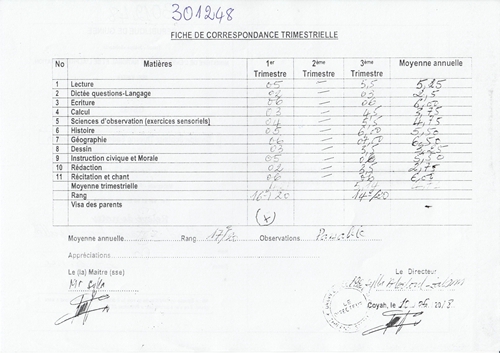 301248
FICHE DE CORRESPONDANCE TRIMESTRIELLE
No Matières 1er Trimestre 2ème Trimestre 3ème Trimestre Moyenne annuelle
1 Lecture 05 — 5,5 5,25
2 Dictée questions-Langage 02 — 03 2,5
3 Ecriture 06 — 06 6,00
4 Calcul 03 — 4,5 3,75
5 Sciences d'observation (exercices sensoriels) 04 — 5,5 4,75
6 Histoire 05 — 6,00 5,50
7 Géographie 06 — 6,50
8 Dessin 03 — 5,5
9 Instruction civique et Morale 05 — 06 5,50
10 Rédaction 02 — 3,5 2,75
11 Récitation et chant 06 — 06 6,00
Moyenne trimestrielle
Rang 16e/20 14e/20
Visa des parents
(x)
Moyenne annuelle Rang 17e/20 Observations Passable
Appréciations
Le (la) Maitre (sse) Le Directeur
Mr Sylla
LE DIRECTEUR
Coyah, le